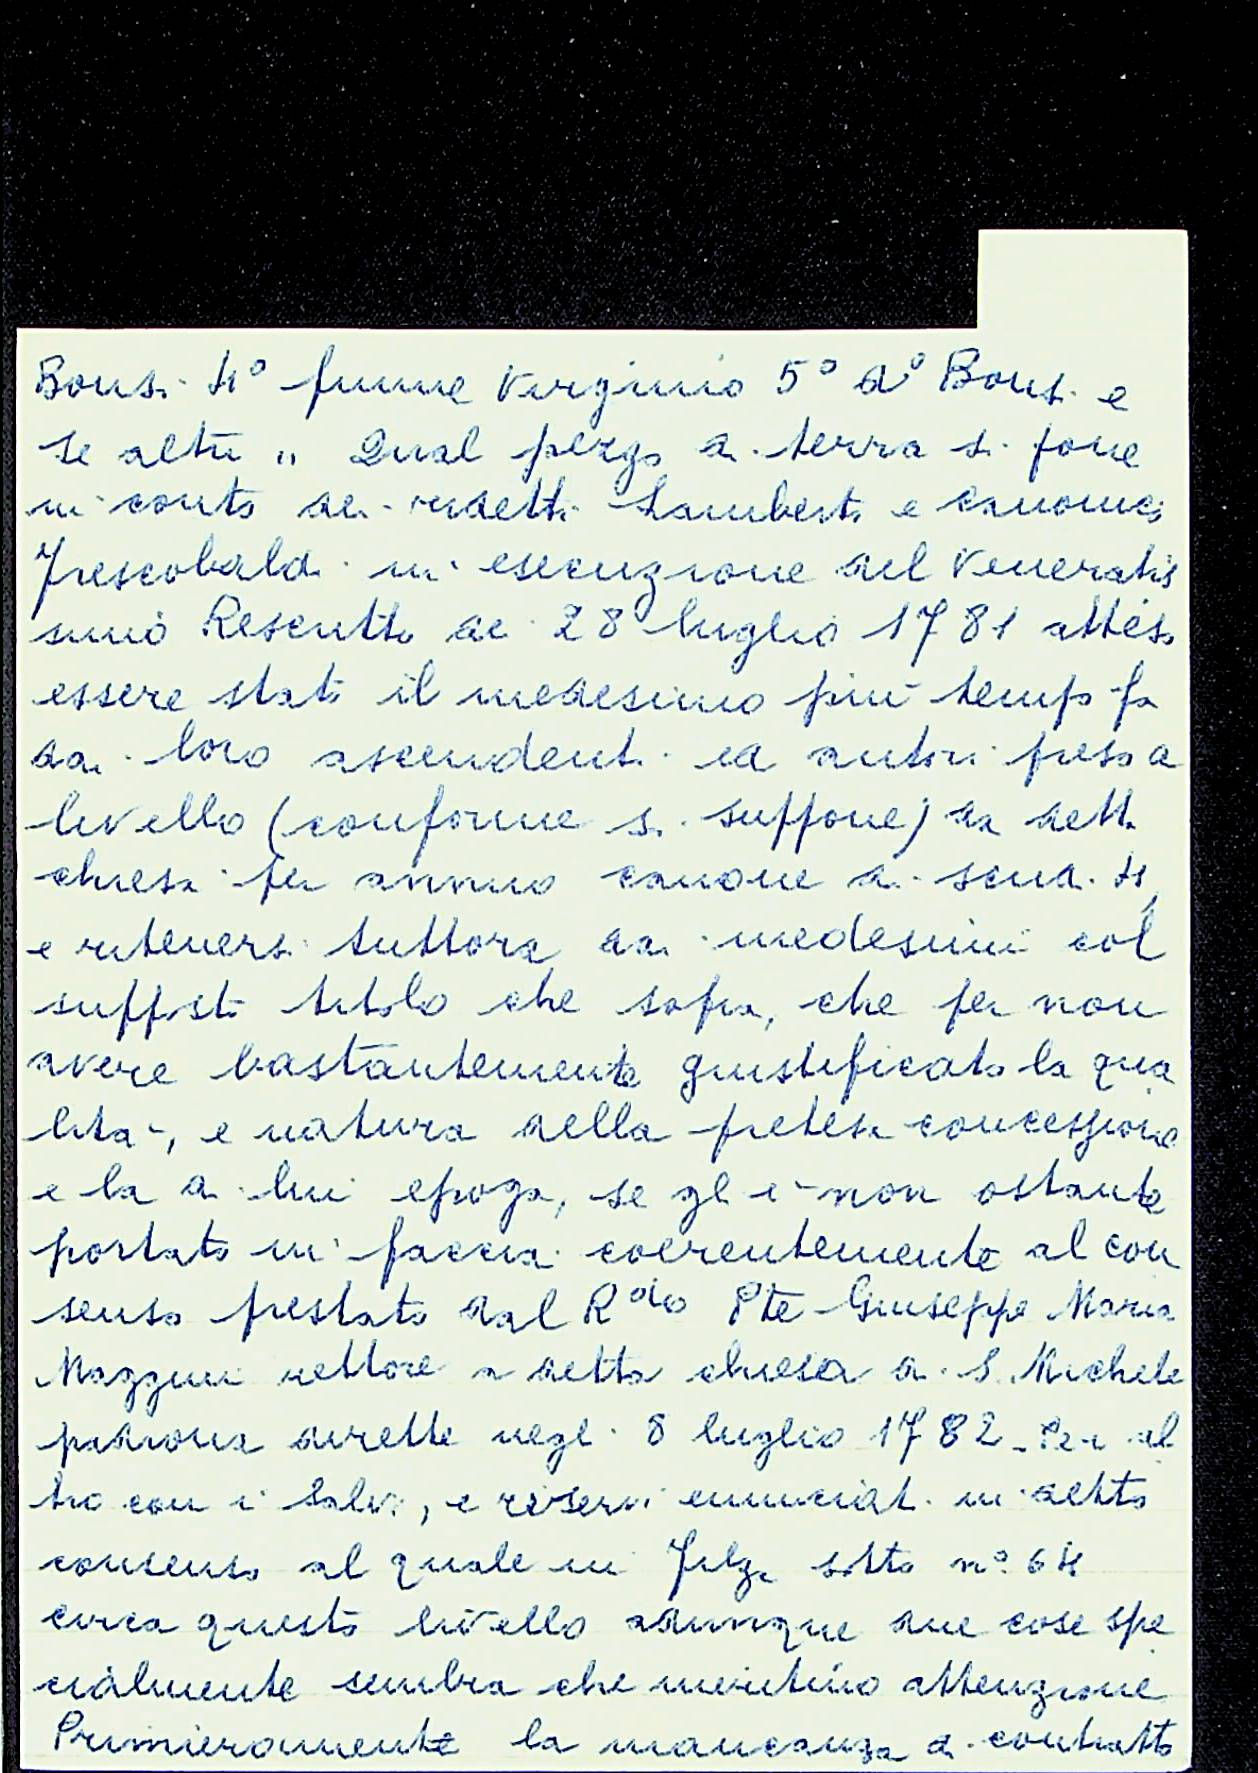 Bonsi 4º fiume Virginio 5º dº Bonsi e
se altri „ Qual pezzo di terra si pone
in conto dei sudetti Lamberti e canonici
Frescobaldi in esecuzione del Veneratis
simo Rescritto de 28 luglio 1781 atteso
essere stato il medesimo più tempo fa
dai loro ascendenti ed autori preso a
livello (conforme si suppone) da detta
chiesa per annuo canone di scudi 4,
e ritenersi tuttora dai medesimi col
supposto titolo che sopra, che per non
avere bastantemente giustificato la qua
lità, e natura della pretesa concessione
e la di lui epoga, se gl è non ostante
portato in faccia coerentemente al con
senso prestato dal Rdo Pte Giuseppe Maria
Mazzini rettore di detta chiesa di S. Michele
padrona dirette negl 8 luglio 1782 - Per al
tro con i salvi, e riservi enunciati in detto
consenso al quale in Filza sotto nº 64
circa questo livello adunque due cose spe
cialmente sembra che meritino attenzione
Primieramente la mancanza di contratto